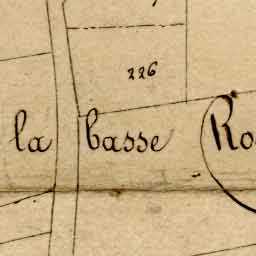 226
la basse Ro